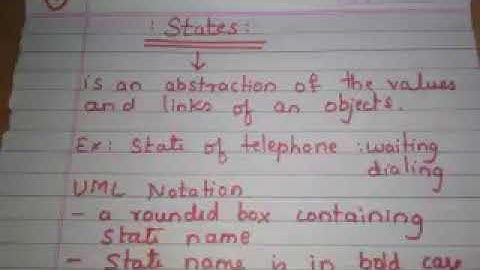 : States :
is an abstraction of the values
and links of an objects.
Ex: State of telephone : waiting
dialing
UML Notation
- a rounded box containing
state name
- State name is in bold case